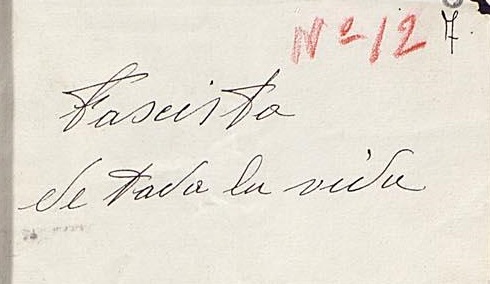 Nº 12 7
Fascista
de toda la vida